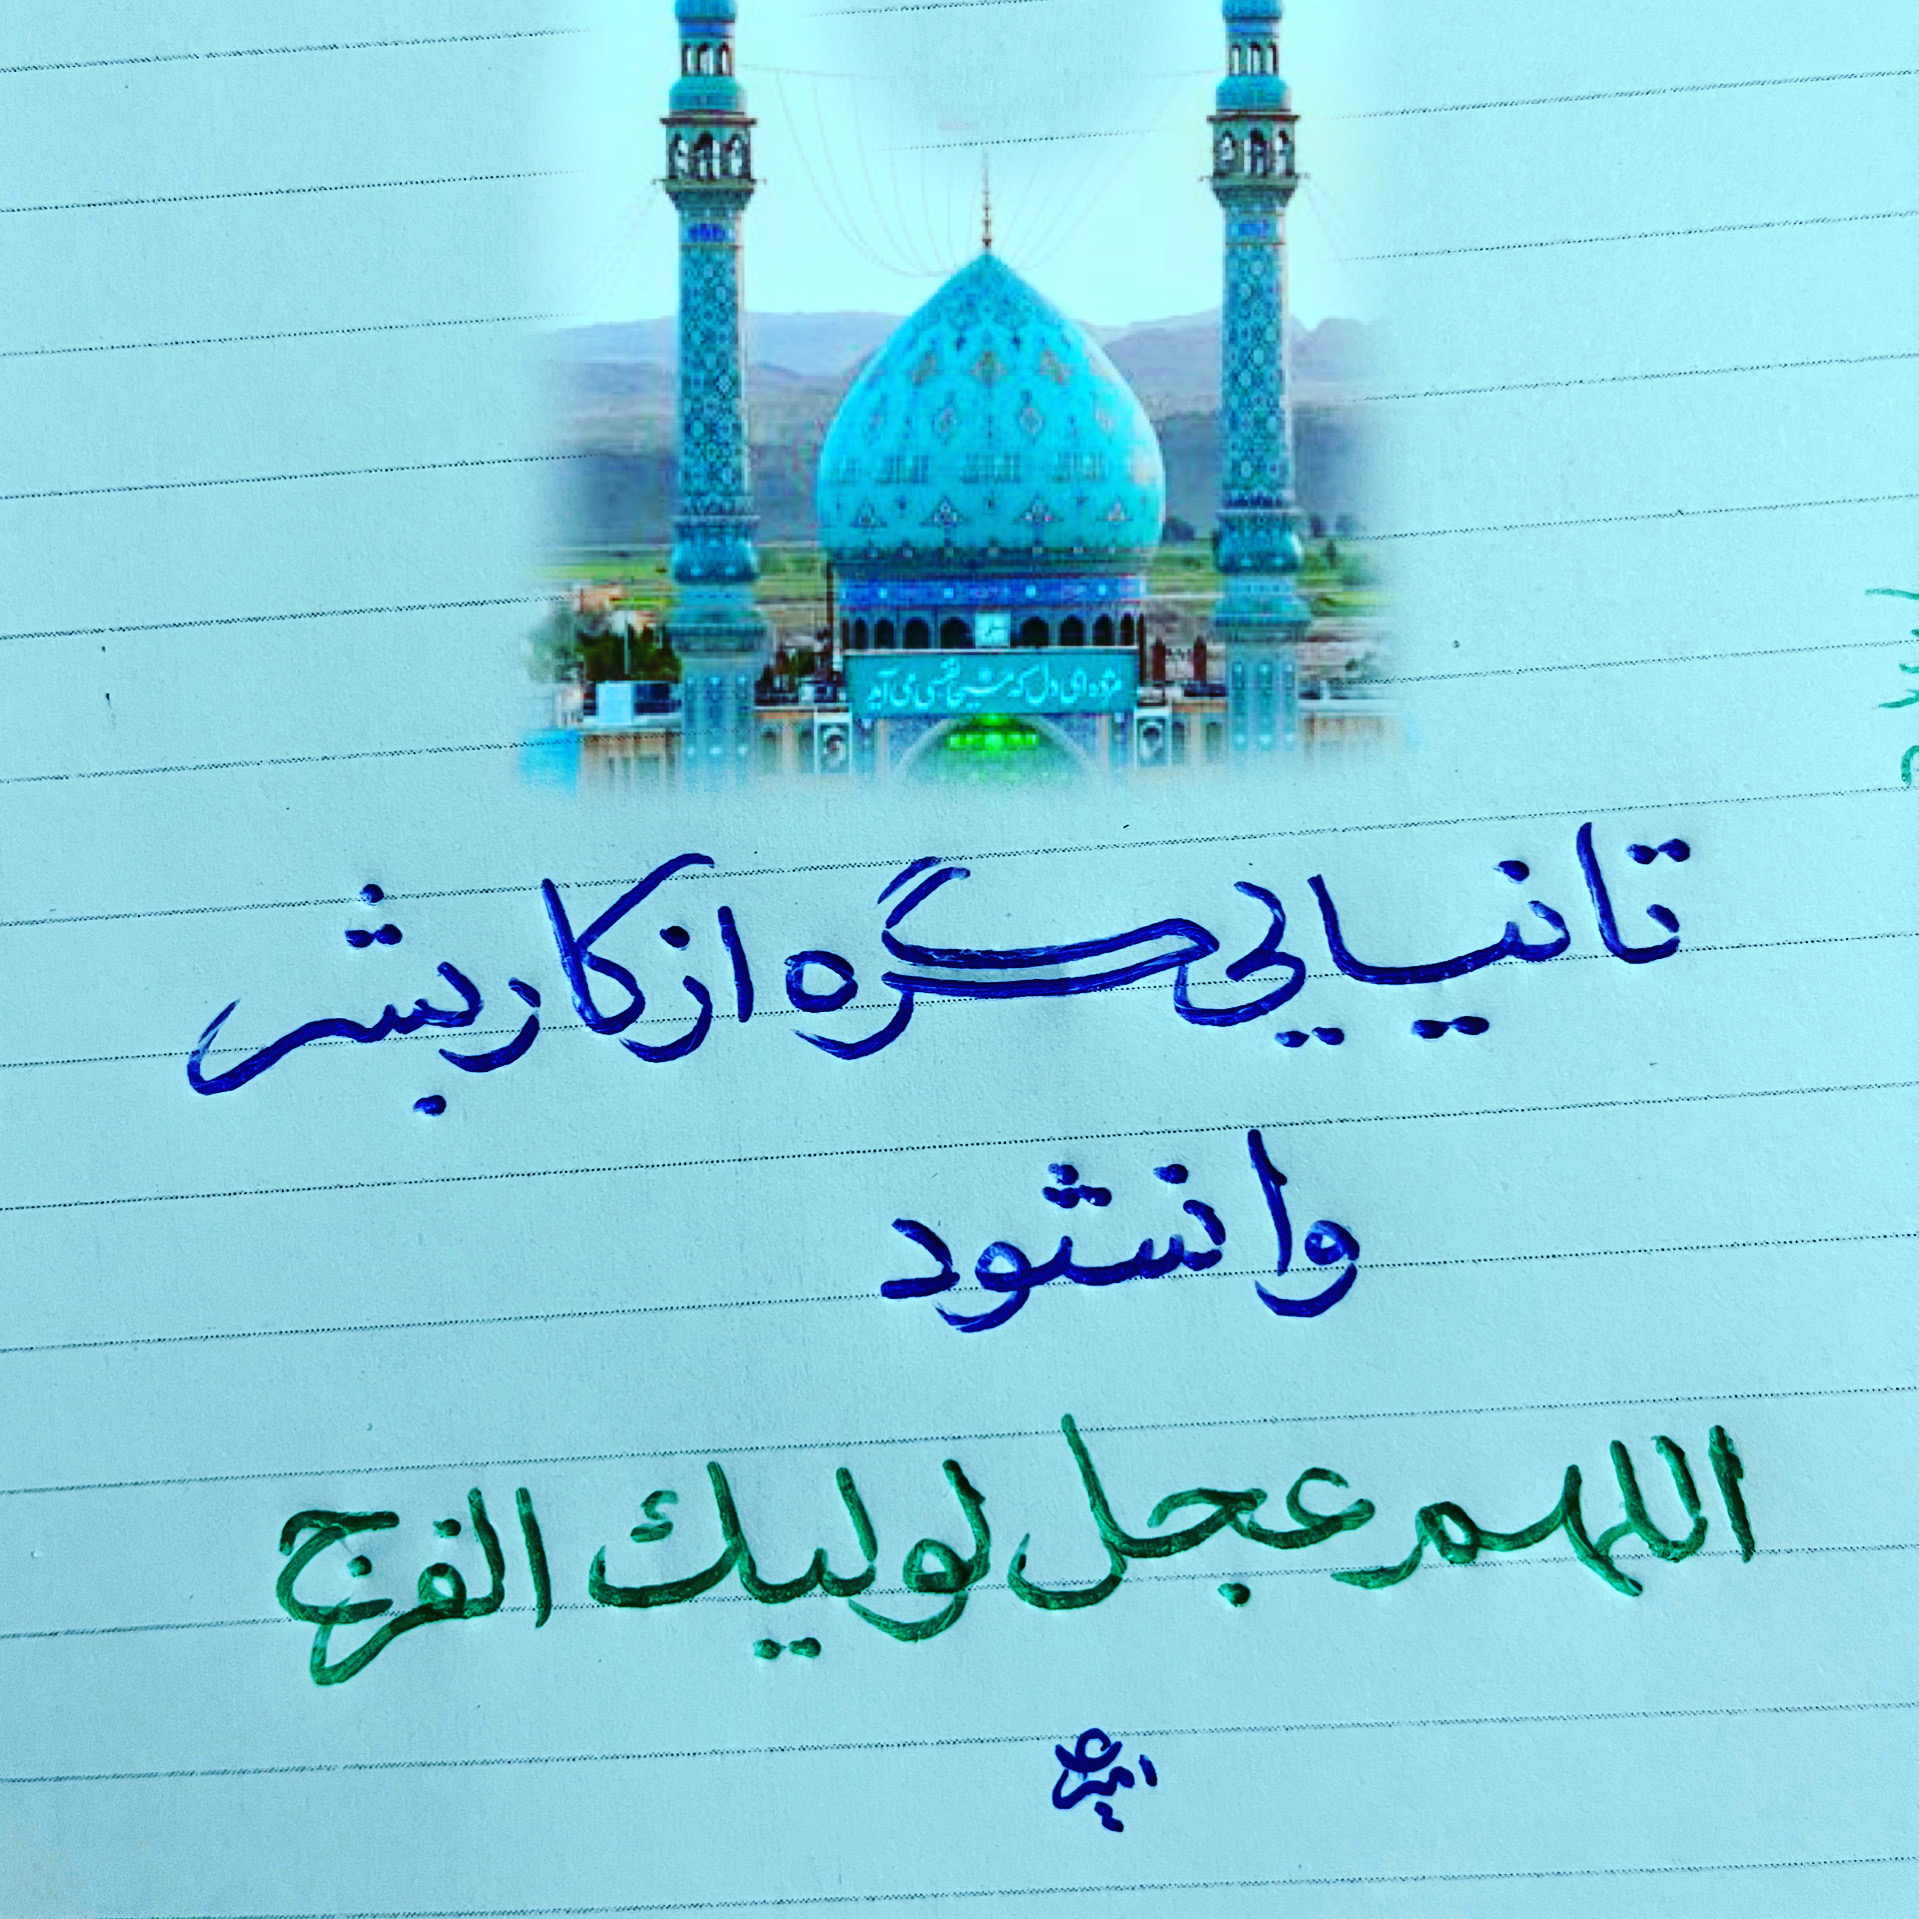 مژده ای دل که مسیحا نفسی می آید
تا نیایی گره از کار بشر
وا نشود
اللهم عجل لولیك الفرج